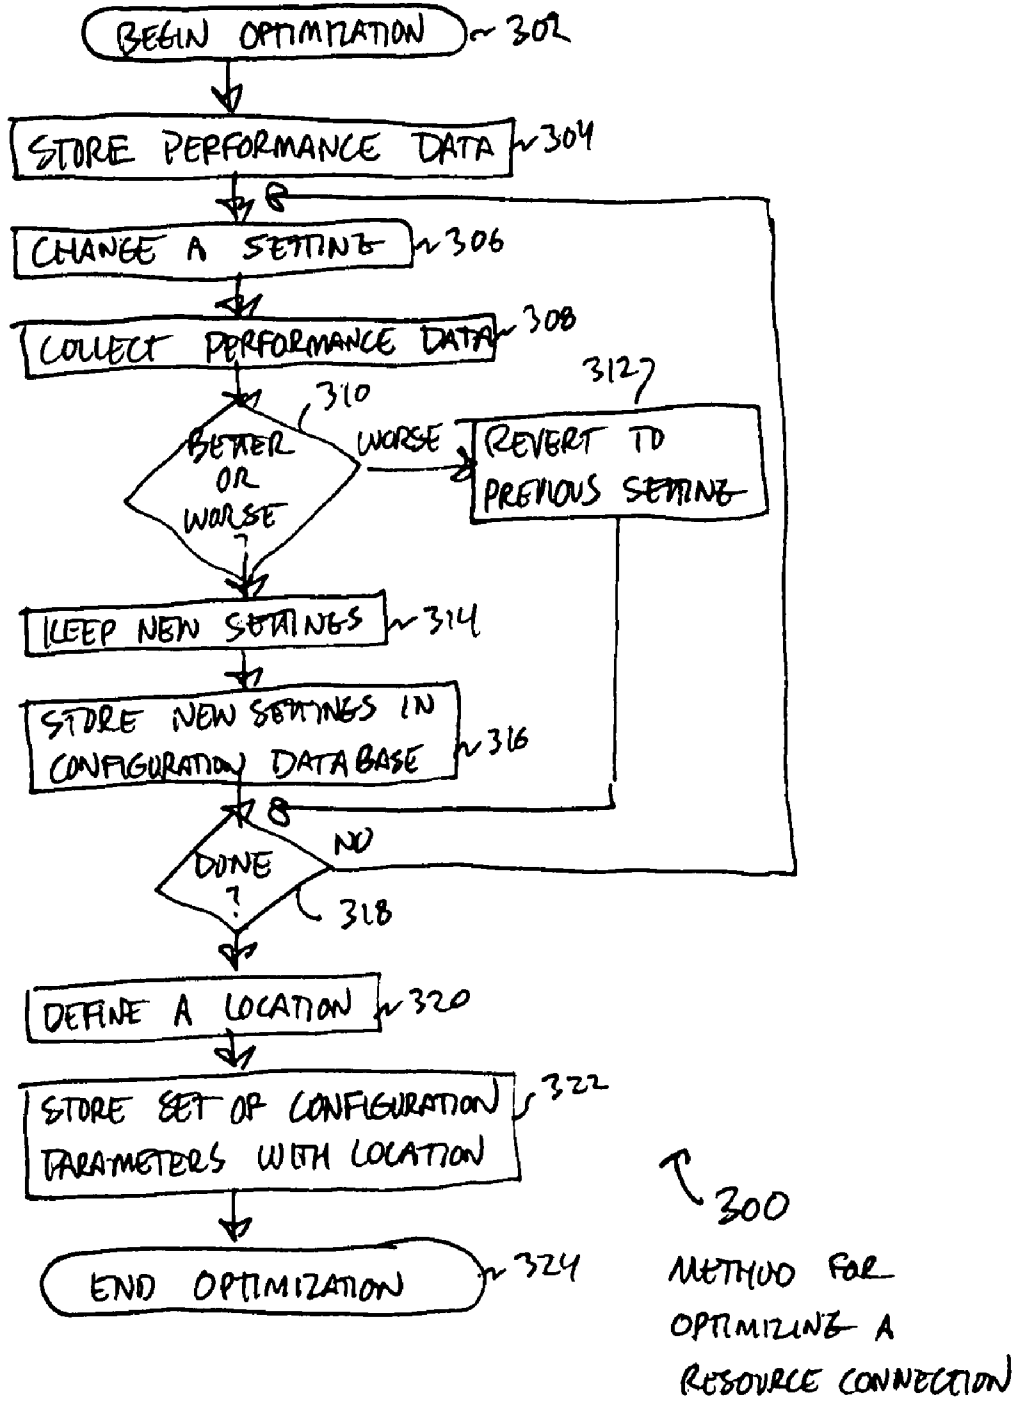 BEGIN OPTIMIZATION 302
STORE PERFORMANCE DATA 304
CHANGE A SETTING 306
COLLECT PERFORMANCE DATA 308
310
BETTER
OR
WORSE
?
WORSE
312
REVERT TO
PREVIOUS SETTING
KEEP NEW SETTINGS 314
STORE NEW SETTINGS IN
CONFIGURATION DATABASE 316
DONE
?
NO
318
DEFINE A LOCATION 320
STORE SET OF CONFIGURATION
PARAMETERS WITH LOCATION 322
END OPTIMIZATION 324
300
METHOD FOR
OPTIMIZING A
RESOURCE CONNECTION